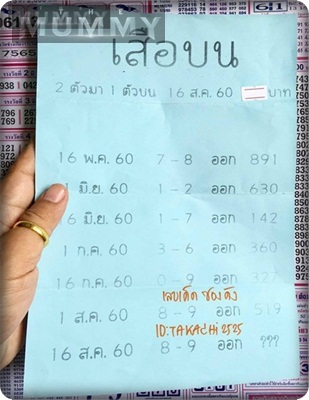 MUMMY
เสือบน
2 ตัวมา 1 ตัวบน 16 ส.ค. 60 บาท
16 พ.ค. 60 7-8 ออก 891
1 มิ.ย. 60 1-2 ออก 630
16 มิ.ย. 60 1-7 ออก 142
1 ก.ค. 60 3-6 ออก 360
16 ก.ค. 60 0-9 ออก 327
เลขเด็ด ซองดัง
1 ส.ค. 60 8-9 ออก 519
ID:TAKACHI2525
16 ส.ค. 60 8-9 ออก ???